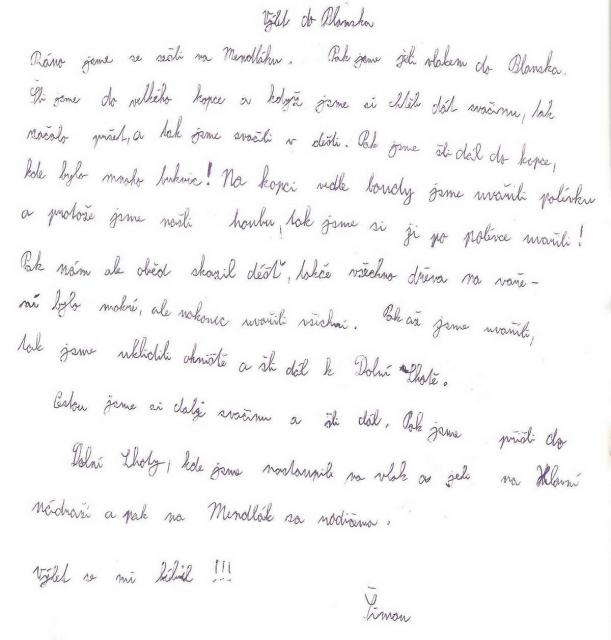 Výlet do Blanska
Ráno jsme se sešli na Mendláku. Pak jsme jeli vlakem do Blanska.
Šli jsme do velkého kopce a když jsme si chtěli dát svačinu, tak
začalo pršet, a tak jsme svačili v dešti. Pak jsme šli dál do kopce,
kde bylo mnoho bukvic! Na kopci vedle boudy jsme uvařili polívku
a protože jsme našli houbu, tak jsme si ji po polívce uvařili!
Pak nám ale oběd skazil déšť, takže všechno dřevo na vaře-
ní bylo mokré, ale nakonec uvařili všichni. Pak až jsme uvařili,
tak jsme uklidili ohniště a šli dál k Dolní Lhotě.
Cestou jsme si dali svačinu a šli dál. Pak jsme přišli do
Dolní Lhoty, kde jsme nastoupili na vlak a jeli na Hlavní
nádraží a pak na Mendlák za rodičema.
Výlet se mi líbil !!!
Šimon